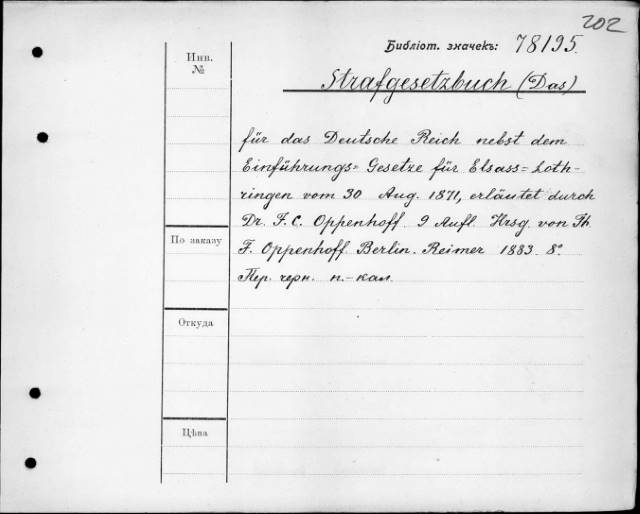 202
Библіот. значекъ: 78195.
Инв.
№
Strafgesetzbuch (Das)
für das Deutsche Reich nebst dem
Einführungs= Gesetze für Elsass=Loth-
ringen vom 30 Aug. 1871, erläutet durch
Dr. F. C. Oppenhoff 9 Aufl. Hrsg. von Th.
По заказу
F. Oppenhoff. Berlin. Reimer 1883. 8°.
Пер. черн. п.-кал.
Откуда
Цѣна